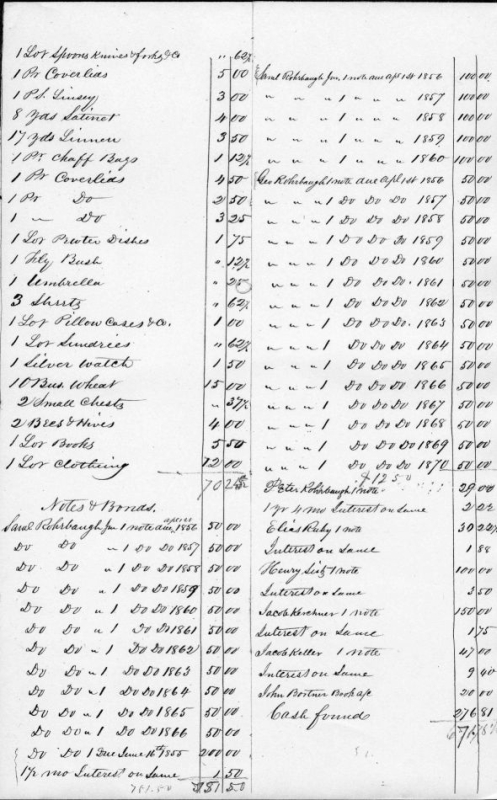 1 Lot Spoons Knives & forks &c " 62½
1 Pr Coverlids 5 00
1 Ps. Linsey 3 00
8 Yds Satinet 4 00
17 Yds Linnen 3 50
1 Pr Chaff Bags 1 12½
1 Pr Coverlids 4 50
1 Pr Do 2 50
1 " Do 3 25
1 Lot Pewter Dishes 1 75
1 Fly Bush " 12½
1 Umbrella " 25
3 Shirts " 62½
1 Lot Pillow Cases & C. 1 00
1 Lot Sundries " 62½
1 Silver Watch 1 50
10 Bus. Wheat 15 00
2 Small Chests " 37½
2 Bees & Hives 4 00
1 Lot Books 5 50
1 Lot Clothing 12 00
Notes & Bonds.
Saml Rohrbaugh Jun 1 note due apl 1st 1856 50 00
Do Do " 1 Do Do 1857 50 00
Do Do " 1 Do Do 1858 50 00
Do Do " 1 Do Do 1859 50 00
Do Do " 1 Do Do 1860 50 00
Do Do " 1 Do Do 1861 50 00
Do Do " 1 Do Do 1862 50 00
Do Do " 1 Do Do 1863 50 00
Do Do " 1 Do Do 1864 50 00
Do Do " 1 Do Do 1865 50 00
Do Do " 1 Do Do 1866 50 00
Do Do 1 Due June 16th 1855 200 00
1½ mo Interest on Same 1 50
751.50 751 50
Saml Rohrbaugh Jun. 1 note due Apl 1st 1856 100 00
" " " 1 " " 1857 100 00
" " " 1 " " 1858 100 00
" " " 1 " " 1859 100 00
" " " 1 " " 1860 100 00
Geo Rohrbaugh 1 note due Apl 1st 1856 50 00
" " " 1 Do Do Do 1857 50 00
" " " 1 Do Do Do 1858 50 00
" " " 1 Do Do Do 1859 50 00
" " " 1 Do Do Do 1860 50 00
" " " 1 Do Do Do. 1861 50 00
" " " 1 Do Do Do 1862 50 00
" " " 1 Do Do Do. 1863 50 00
" " " 1 Do Do Do 1864 50 00
" " " 1 Do Do Do 1865 50 00
" " " 1 Do Do Do 1866 50 00
" " " 1 Do Do Do 1867 50 00
" " " 1 Do Do Do 1868 50 00
" " " 1 Do Do Do 1869 50 00
" " " 1 Do Do Do 1870 50 00
Peter Rohrbaugh 1 note 29 00
1 yr 4 mo Interest on Same 2 22
Elias Ruby 1 note 30 22½
Interest on Same 1 88
Henry 1 note 100 00
Interest on Same 3 50
Jacob Kerchner 1 note 150 00
Interest on Same 1 75
Jacob Keller 1 note 47 00
Interest on Same 9 40
John Bortner Book a/c 20 00
Cash found 276 81